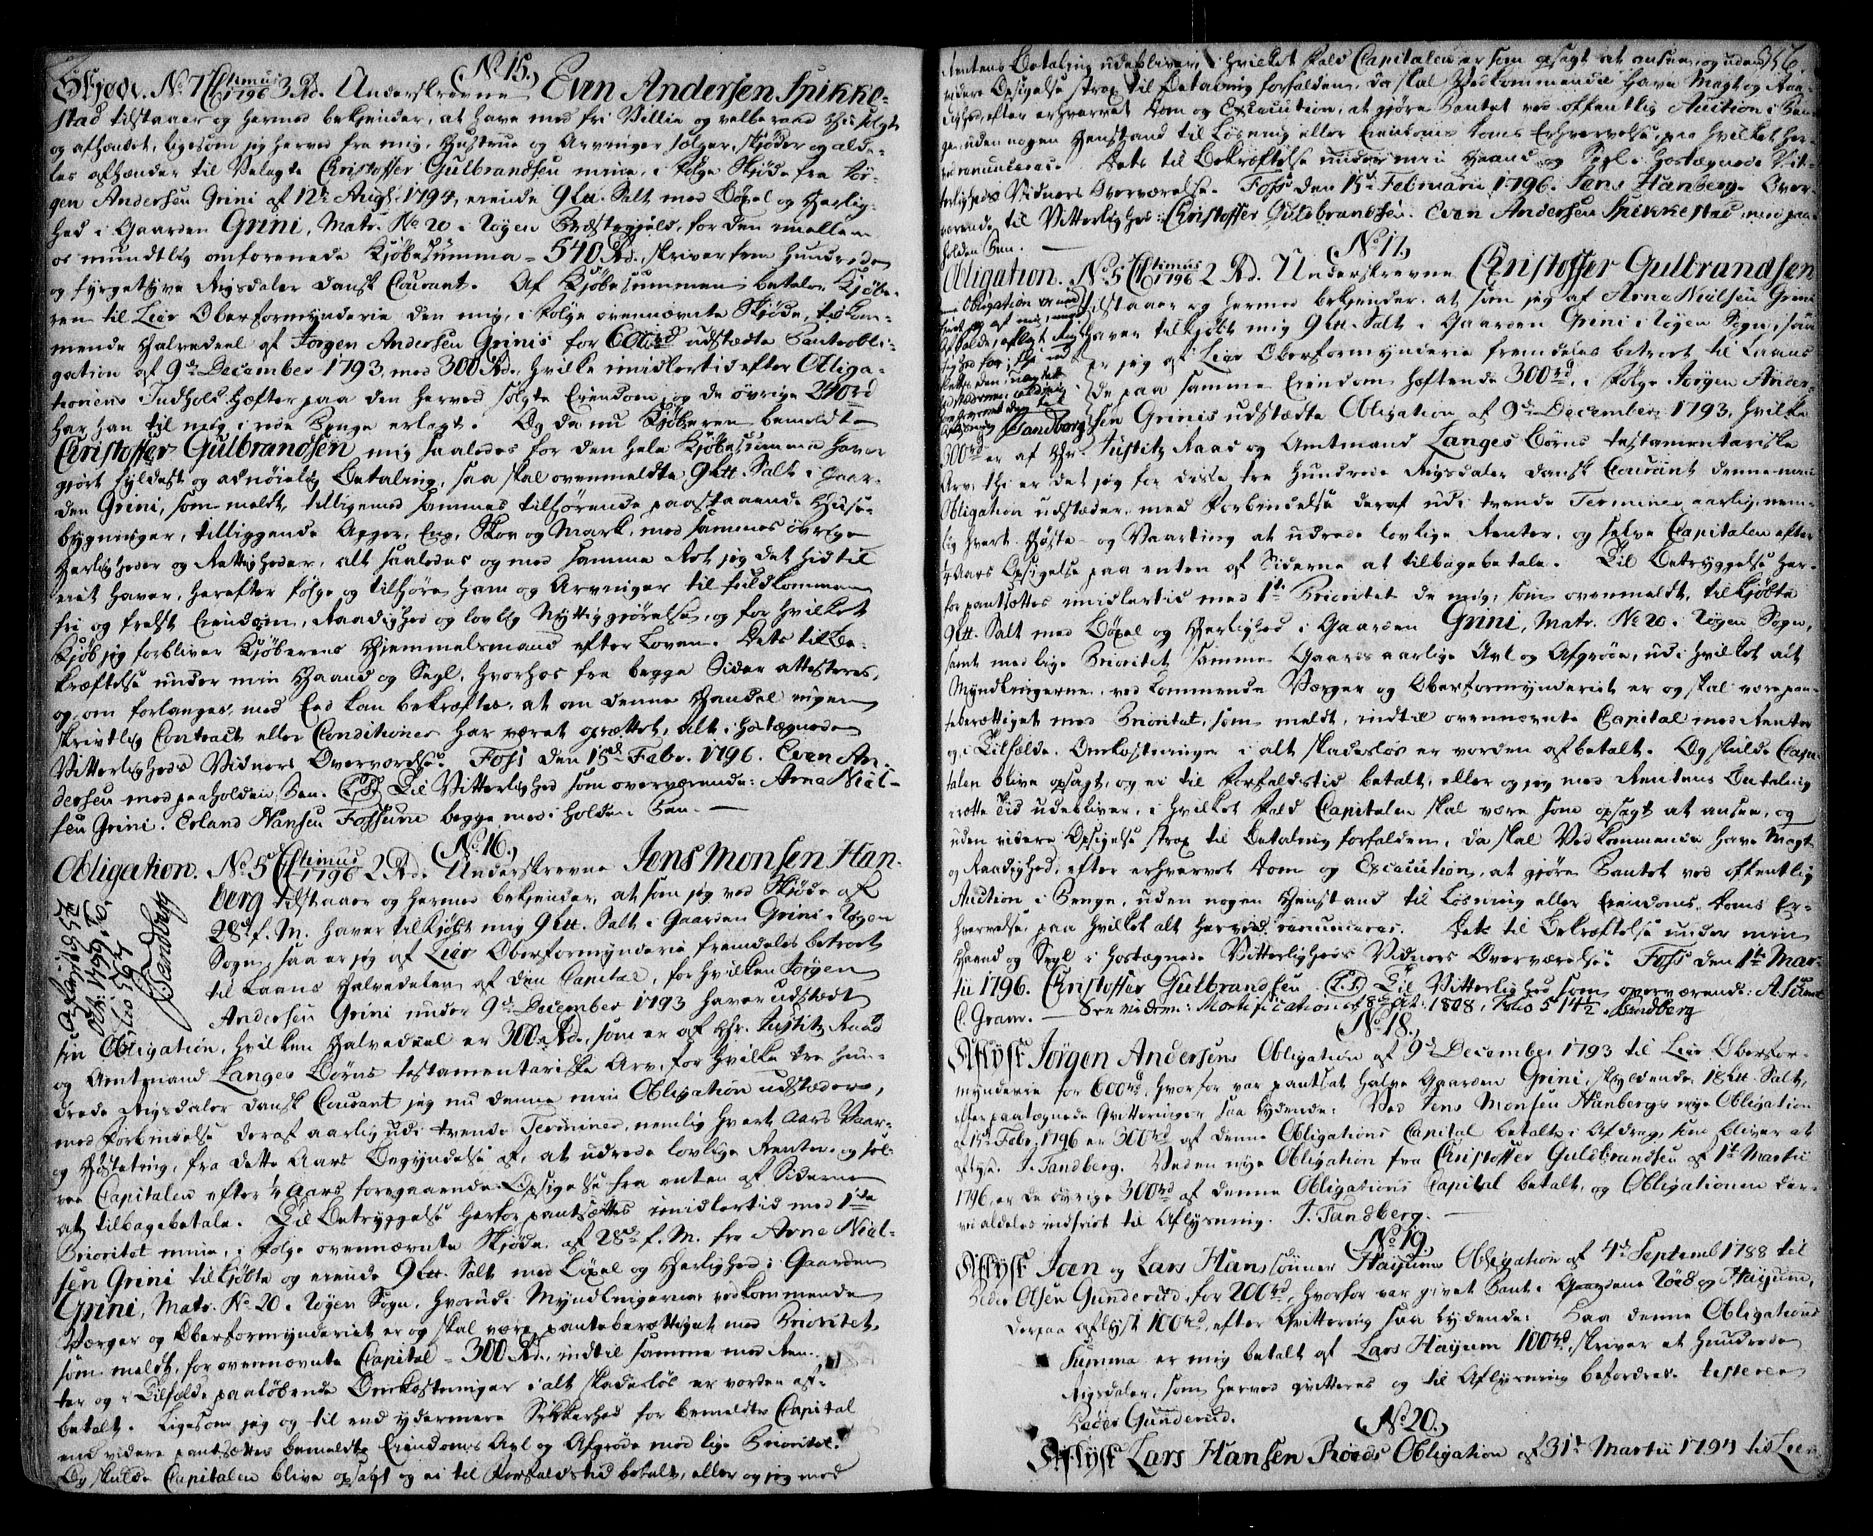 No 15.
Skjøde. No 7 Cl timus 1796 3 Rd. Underskrevne Even Andersen Spikke-
stad tilstaaer og hermed bekjender, at have med frie Villie og velberaad Hu solgt
og afhændet, ligesom jeg herved fra mig, Hustrue og Arvinger sælger, skjøder og alde-
les afhænder til Velagte Christoffer Gulbrandsen mine, i følge Skjøde fra Jør-
gen Andersen Grini af 12te Augs. 1794, eiende 9 Lit. Salt med Bøxel og Herlig-
hed i Gaarden Grini, Matr. No 20 i Røyen Præstegjeld, for den imellem
os mundtlig omforenede Kjøbesumma = 540 Rd., skriver fem Hundrede
og fyrgetyve Rigsdaler dansk Courant. Af Kjøbesummen betaler Kjøbe-
ren til Lier Oberformynderie den mig, i følge ovennævnte Skjøde, tilkom-
mende Halvedeel af Jørgen Andersen Grinis for 600 rd udstædte Pantebli-
gation af 9de December 1793, med 300 Rd., hvilke imidlertid efter Obliga-
tionens Indhold hæfter paa den herved solgte Eiendom, og de øvrige 240 rd
har han til mig i rede Penge erlagt. Og da nu Kjøberen bemeldte
Christoffer Gulbrandsen mig saaledes for den hele Kjøbesumma haver
gjort fyldest og adnøielig Betaling, saa skal ovenmeldte 9 Lit. Salt i Gaar-
den Grini, som meldt, tilligemed sammes tilhørende paastaaende Huse-
bygninger, tilliggende Ager, Eng, Skov og Mark, med sammes øvrige
Herligheder og Rettigheder, alt saaledes og med samme Ret jeg det hidtil
eiet haver, herefter følge og tilhøre ham og Arvinger til fuldkommen
fri og frelst Eiendom, Raadighed og lovlig Nyttiggjørelse, og for hvilket
Kjøb jeg forbliver Kjøberens Hjemmelsmand efter Loven. Dets til Be-
kræftelse under min Haand og Segl, hvorhos fra begge Sider attesteres,
og, om forlanges, med Eed kan bekræftes, at om denne Handel ingen
skrivtlig Contract eller Conditioner har været oprettet, alt i hostegnede
Vitterligheds Vidners Overværelse. Foss den 15de Febr. 1796. Even An-
dersen med paaholden Pen. (L.S.) Til Vitterlighed som overværende: Arne Niel-
sen Grini. Erland Hansen Fossum begge med i holden Pen.
No 16.
Obligation. No 5 Cl timus 1796 2 Rd. Underskrevne Jens Monsen Han-
berg tilstaaer og hermed bekjender, at som jeg ved Skjøde af
28de f. M. haver tilkjøbt mig 9 Lit. Salt i Gaarden Grini i Røyen
Sogn, saa er jeg af Lier Oberformynderie fremdeles betroet
til Laans Halvedelen af den Capital, for hvilken Jørgen
Andersen Grini under 9de December 1793 haver udstædt
sin Obligation, hvilken Halvedeel er 300 Rd., som er af Hr. Justitz Raad
og Amtmand Langes Børns testamentariske Arv, for hvilke tre Hun-
drede Rigsdaler dansk Courant jeg nu denne min Obligation udstæder,
med Forbindelse deraf aarlig udi tvende Terminer, nemlig hvert Aars Vaar-
og Høsteting, fra dette Aars Begyndelse af, at udrede lovlige Renter og sel-
ve Capitalen efter 1/4 Aars foregaaende Opsigelse fra enten af Siderne
at tilbagebetale. Til Betryggelse herfor pantsættes imidlertid med 1ste
Prioritet mine, i følge ovennævnte Skjøde af 28de f. M. fra Arne Niel-
sen Grini tilkjøbte og eiende 9 Lit. Salt med Bøxel og Herlighed i Gaarden
Grini, Matr. No 20 i Røyen Sogn, hvorudi Myndlingernes vedkommende
Værger og Oberformynderiet er og skal være panteberættiget med Prioritet,
som meldt, for ovennævnte Capital = 300 Rd., indtil samme med Ren-
ter og i Tilfælde paaløbende Omkostninger i alt skadesløs er vorden af-
betalt. Ligesom jeg og til end ydermere Sikkerhed for bemeldte Capital
end videre pantsætter bemeldte Eiendoms Avl og Afgrøde med lige Prioritet.
Og skulde Capitalen blive opsagt og ei til Forfaldstid betalt, eller og jeg med
Aflyst d. 5te
Octr. 1799, Fo-
lio 567.
Tandberg
356.
Rentens Betaling udebliver, i hvilket Fald Capitalen er som opsagt at ansee, og uden
videre Opsigelse strax til Betaling forfalden, da skal Vedkommende have Magt og Raa-
dighed, efter erhvervet Dom og Execution, at gjøre Pantet ved offentlig Auction i Pen-
ge, uden nogen Henstand til Løsning eller Eiendoms Doms Erhvervelse, paa hvilket her-
ved renunceres. Dets til Bekræftelse under min Haand og Segl i hostegnede Vit-
terligheds Vidners Overværelse. Foss den 15de Februarii 1796. Jens Hanberg. Over-
værende til Vitterlighed: Christoffer Gulbrandsen. Even Andersen Spikkestad med paa-
holden Pen.
No 17.
Obligation. No 5 Cl timus 1796 2 Rd. Underskrevne Christoffer Gulbrandsen
tilstaaer og hermed bekjender, at som jeg af Arne Nielsen Grini
haver tilkjøbt mig 9 Lit. Salt i Gaarden Grini i Røyen Sogn, saa
er jeg af Lier Oberformynderie fremdeles betroet til Laans
de paa samme Eiendom hæftende 300 rd, i følge Jørgen Ander-
sen Grinis udstædte Obligation af 9de December 1793, hvilke
300 rd er af Hr. Justitz Raad og Amtmand Langes Børns testamentariske
Arv, thi er det jeg for disse tre Hundrede Rigsdaler dansk Courant denne min
Obligation udstæder, med Forbindelse deraf udi tvende Terminer aarlig, nem-
lig hvert Høste- og Vaarting at udrede lovlige Renter, og selve Capitalen efter
1/4 Aars Opsigelse paa enten af Siderne at tilbagebetale. Til Betryggelse her-
for pantsættes imidlertid med 1ste Prioritet de mig, som ovenmeldt, tilkjøbte
9 Lit. Salt med Bøxel og Herlighed i Gaarden Grini, Matr. No 20 i Røyen Sogn,
samt med lige Prioritet samme Gaards aarlige Avl og Afgrøde, udi hvilket alt
Myndlingerne, vedkommende Værger og Oberformynderiet er og skal være pan-
teberættiget med Prioritet, som meldt, indtil ovennævnte Capital med Renter
og i Tilfælde Omkostninger i alt skadesløs er vorden afbetalt. Og skulde Capi-
talen blive opsagt, og ei til Forfaldstid betalt, eller og jeg med Rentens Betaling
i rette Tid udebliver, i hvilket Fald Capitalen skal være som opsagt at ansee, og
uden videre Opsigelse strax til Betaling forfalden, da skal Vedkommende have Magt
og Raadighed, efter erhvervet Dom og Execution, at gjøre Pantet ved offentlig
Auction i Penge, uden nogen Henstand til Løsning eller Eiendoms Doms Er-
hvervelse, paa hvilket alt herved renunceres. Dets til Bekræftelse under min
Haand og Segl i hostegnede Vitterligheds Vidners Overværelse. Foss den 1te Mar-
tii 1796. Christoffer Gulbrandsen (L.S.) Til Vitterlighed som overværende:
C. Gram. See videre: Mortification af 8de Oct. 1808, Folio 514 1/2. Tandberg
No 18.
Aflyst Jørgen Andersens Obligation af 9de December 1793 til Lier Oberfor-
mynderie for 600 rd, hvorfor var pantsat halve Gaarden Grini, skyldende 18 Lit. Salt,
efter paategnede Qvitteringer saa lydende: Ved Jens Monsen Hanbergs nye Obligation
af 15de Febr. 1796 er 300 rd af denne Obligations Capital betalt i Afdrag, som bliver at
aflyse. J. Tandberg. Ved en nye Obligation fra Christoffer Guldbrandsen af 1te Martii
1796, er de øvrige 300 rd af denne Obligations Capital betalt, og Obligationen der-
ved aldeles indfriet til Aflysning. J. Tandberg.
No 19.
Aflyst Joen og Lars Hans sønner Høyums Obligation af 4de Septembr 1788 til
Peder Olsen Gunderud, for 200 rd, hvorfor var givet Pant i Gaardene Røed og Høyum,
derpaa aflyst 100 rd, efter Qvittering saa lydende: Paa denne Obligations
Summa er mig betalt af Lars Høyum 100 rd, skriver et Hundrede
Rigsdaler, som herved qvitteres og til Aflysning befordres. testerer
Peder Gunderud.
No 20.
Aflyst Lars Hansen Røeds Obligation af 31te Martii 1794 til Lier